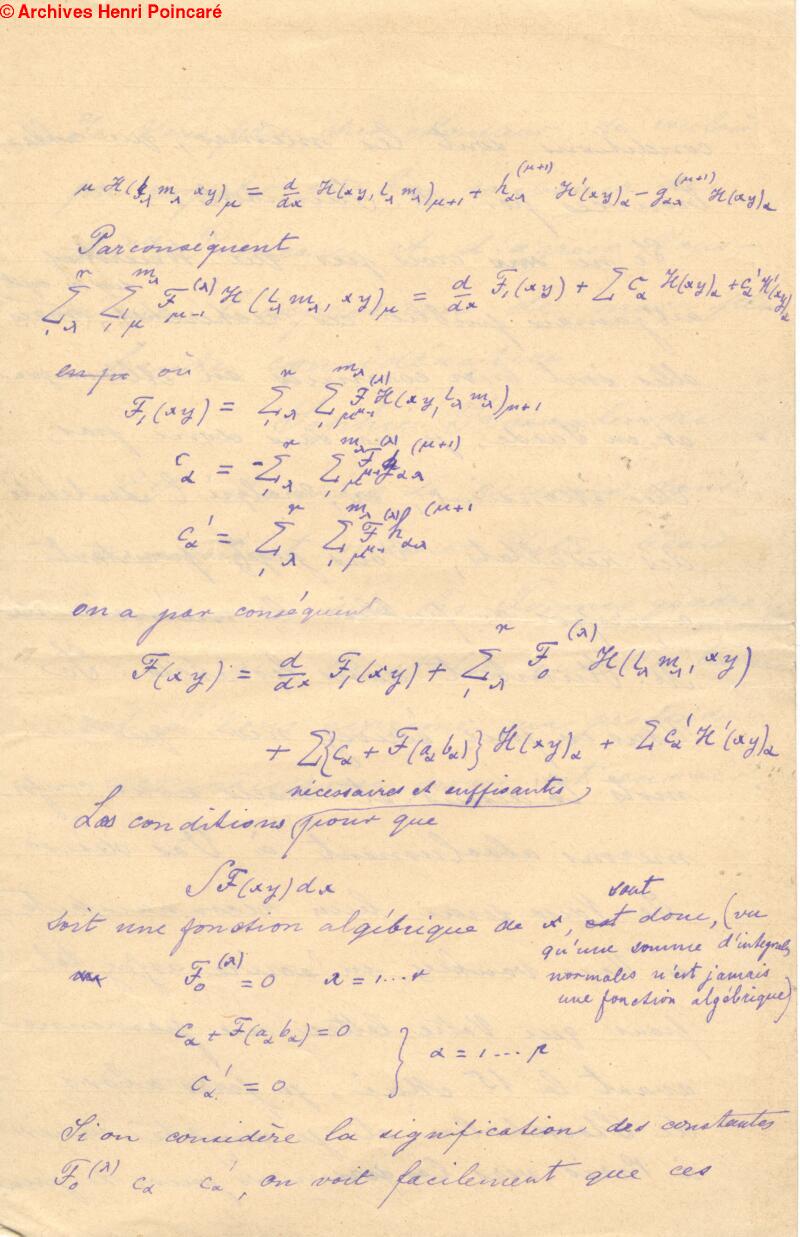 © Archives Henri Poincaré
μ H(l_λ m_λ xy)_μ = d/dx H(xy, l_λ m_λ)_{μ+1} + h_{αλ}^{(μ+1)} H'(xy)_α − g_{αλ}^{(μ+1)} H(xy)_α
Par conséquent
∑_{1 λ}^{r} ∑_{1 μ}^{m_λ} F_{μ-1}^{(λ)} H(l_λ m_λ, xy)_μ = d/dx F_1(xy) + ∑ c_α H(xy)_α + c'_α H'(xy)_α
où
F_1(xy) = ∑_{1 λ}^{r} ∑_{1 μ}^{m_λ} F_{μ-1}^{(λ)} H(xy, l_λ m_λ)_{μ+1}
c_α = −∑_{1 λ}^{r} ∑_{1 μ}^{m_λ} F_{μ-1}^{(λ)} g_{αλ}^{(μ+1)}
c'_α = ∑_{1 λ}^{r} ∑_{1 μ}^{m_λ} F_{μ-1}^{(λ)} h_{αλ}^{(μ+1}
on a par conséquent
F(xy) = d/dx F_1(xy) + ∑_{1 λ}^{r} F_0^{(λ)} H(l_λ m_λ, xy)
+ ∑{c_α + F(a_α b_α)} H(xy)_α + ∑ c'_α H'(xy)_α
nécessaires et suffisantes
Les conditions pour que
∫F(xy)dx
sont
soit une fonction algébrique de x, est donc, (vu
qu'une somme d'integrales
normales n'est jamais
une fonction algébrique)
F_0^{(λ)} = 0 λ = 1...r
c_α + F(a_α b_α) = 0
} α = 1...p
c'_α = 0
Si on considère la signification des constantes
F_0^{(λ)} c_α c'_α, on voit facilement que ces